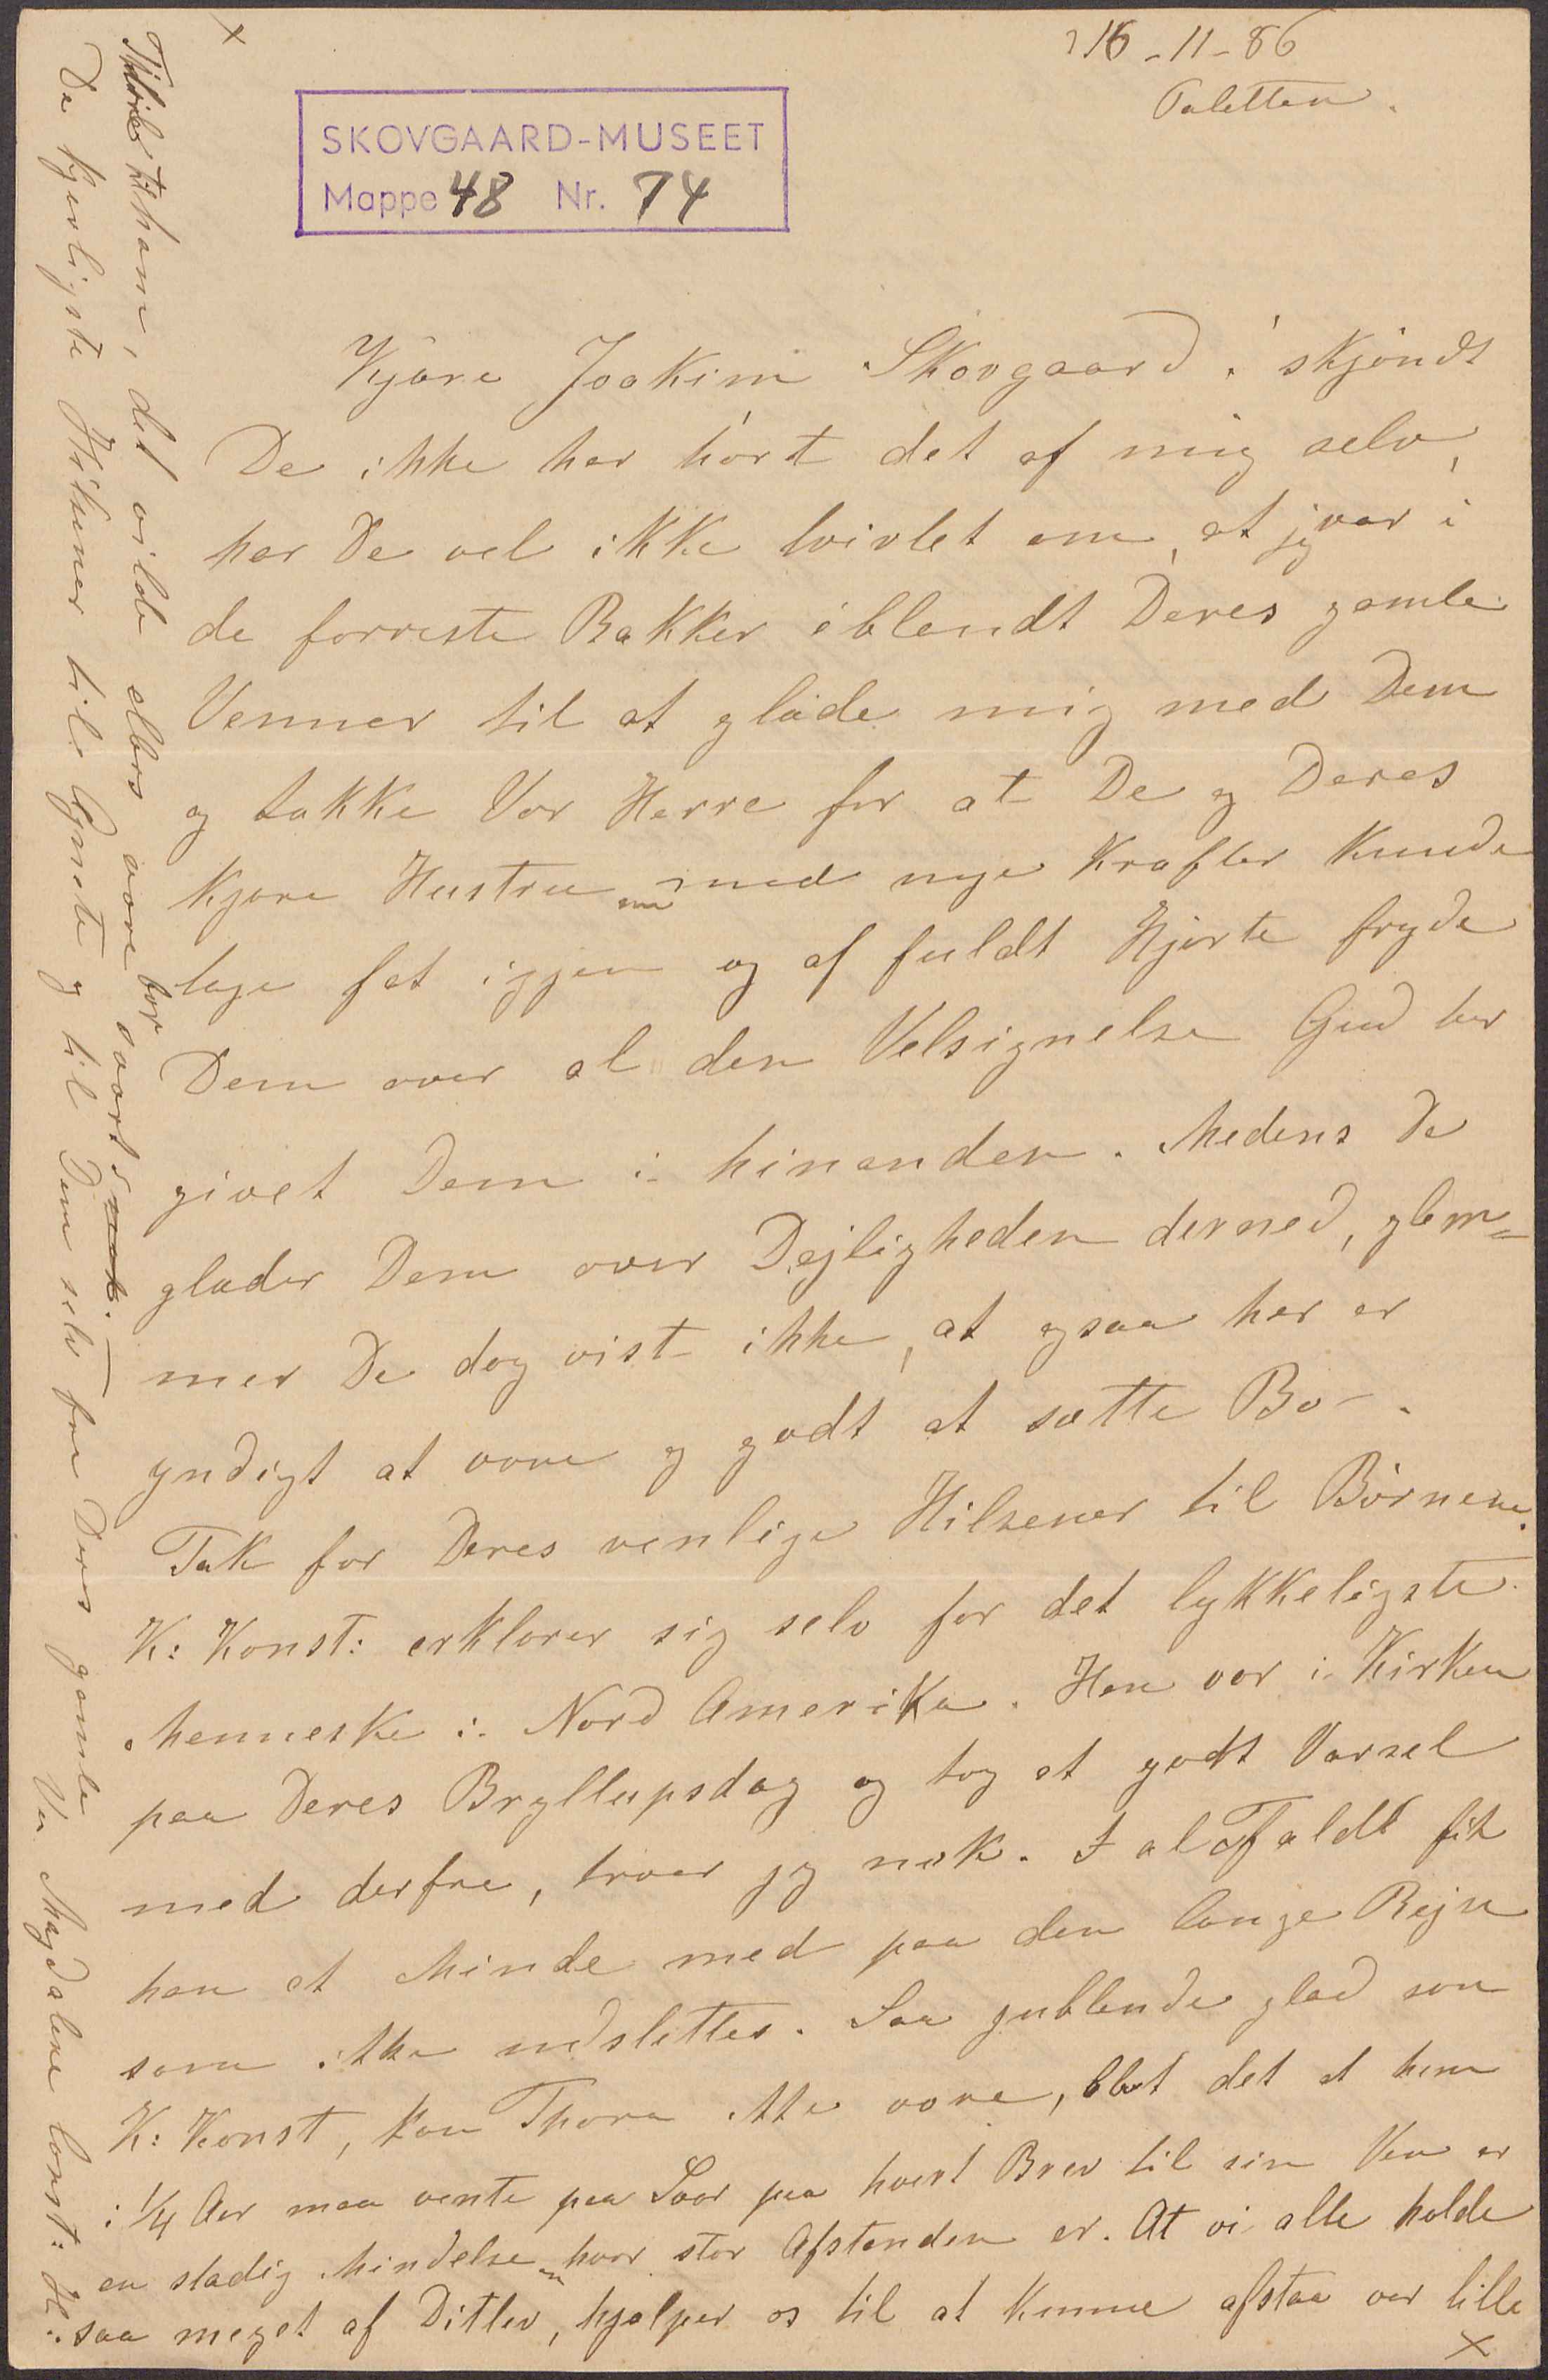 16-11-86
Paletten.
SKOVGAARD-MUSEET
Mappe 48 Nr. 74
Kjære Joakim Skovgaard! skjöndt
De ikke har hört det af mig selv,
har De vel ikke tvivlet om, at jeg var i
de forreste Rækker iblandt Deres gamle
Venner til at glæde mig med Dem
og takke Vor Herre for at De og Deres
kjære Hustru nu med nye Kræfter kunde
tage fat igjen og af fuldt Hjerte fryde
Dem over al den Velsignelse Gud har
givet Dem i hinanden. Medens De
glæder Dem over Dejligheden derned, glem=
mer De dog vist ikke, at ogsaa her er
yndigt at være og godt at sætte Bo.
Tak for Deres venlige Hilsener til Börnene.
K: Konst: erklærer sig selv for det lykkeligste
Menneske i Nord Amerika. Han var i Kirken
paa Deres Bryllupsdag og tog et godt Varsel
med derfra, troer jeg nok. I al Fald fik
han et Minde med paa den lange Rejse
som ikke udslettes. Saa jublende glad som
K: Konst, kan Thora ikke være, blot det at hun
i 1/4 Aar maa vente paa Svar paa hvert Brev til sin Ven er
en stadig Mindelse om hvor stor Afstanden er. At vi alle holde
saa meget af Ditlev, hjælper os til at kunne afstaa vor lille
x
x
Thora til ham, det vilde ellers være for svært. —
De kjærligste Hilsener til Agnete og til Dem selv fra Deres gamle
Ven Magdalene Const: H: